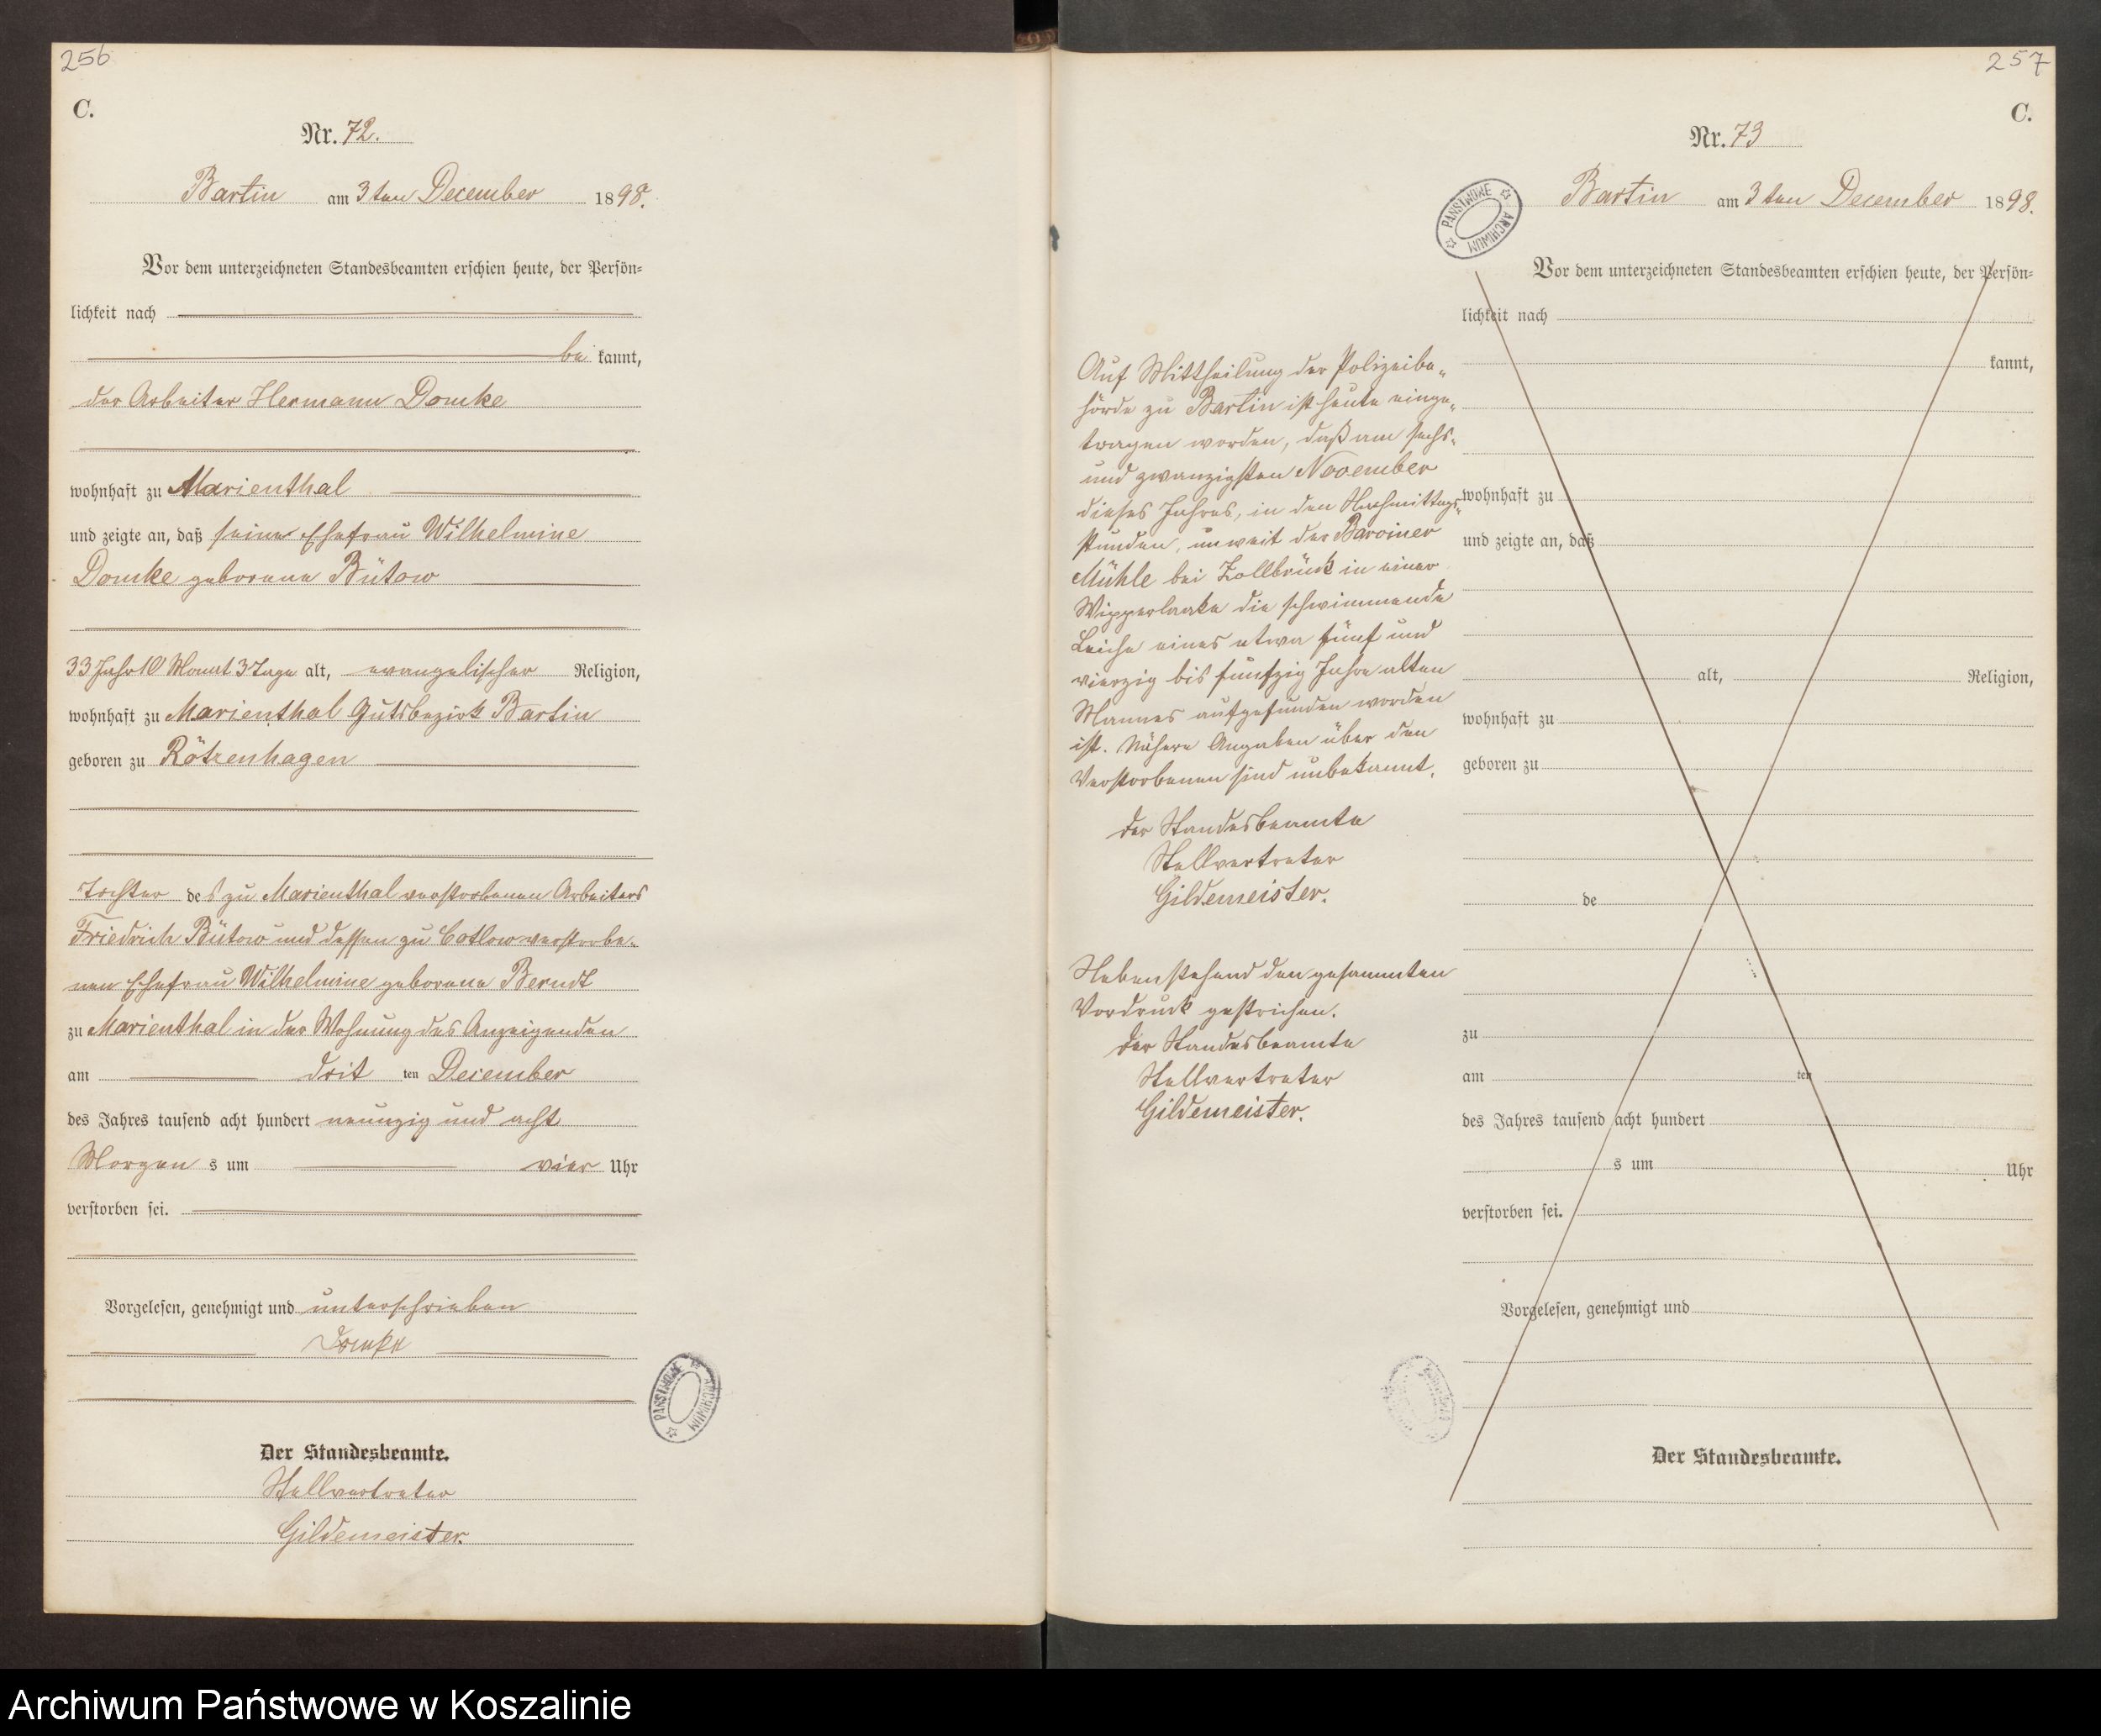 256
C.
Nr. 72.
Bartin am 3ten December 1898.
Vor dem unterzeichneten Standesbeamten erschien heute, der Persön=
lichkeit nach
be kannt,
der Arbeiter Hermann Domke
wohnhaft zu Marienthal
und zeigte an, daß seine Ehefrau Wilhelmine
Domke geborene Bütow
33 Jahr 10 Monat 3 Tage alt, evangelischer Religion,
wohnhaft zu Marienthal Gutsbezirk Bartin
geboren zu Rötzenhagen
Tochter des zu Marienthal verstorbenen Arbeiters
Friedrich Bütow und dessen zu Cotlow verstorbe-
nen Ehefrau Wilhelmine geborene Berndt
zu Marienthal in der Wohnung des Anzeigenden
am drit ten December
des Jahres tausend acht hundert neunzig und acht
Morgen s um vier Uhr
verstorben sei.
Vorgelesen, genehmigt und unterschrieben
Domke
Der Standesbeamte.
Stellvertreter
Gildemeister.
PAŃSTWOWE ARCHIWUM
257
C.
Nr. 73
Bartin am 3ten December 1898.
PAŃSTWOWE ARCHIWUM
Auf Mittheilung der Polizeibe-
hörde zu Bartin ist heute einge-
tragen worden, daß am sechs-
und zwanzigsten November
dieses Jahres, in den Nachmittags-
stunden, unweit der Barviner
Mühle bei Zollbrück in einer
Wipperlaake die schwimmende
Leiche eines etwa fünf und
vierzig bis fünfzig Jahre alten
Mannes aufgefunden worden
ist. Nähere Angaben über den
Verstorbenen sind unbekannt.
Der Standesbeamte
Stellvertreter
Gildemeister.
Nebenstehend den gesammten
Vordruck gestrichen.
Der Standesbeamte
Stellvertreter
Gildemeister.
Vor dem unterzeichneten Standesbeamten erschien heute, der Persön=
lichkeit nach
kannt,
wohnhaft zu
und zeigte an, daß
alt, Religion,
wohnhaft zu
geboren zu
de
zu
am ten
des Jahres tausend acht hundert
s um Uhr
verstorben sei.
Vorgelesen, genehmigt und
Der Standesbeamte.
Archiwum Państwowe w Koszalinie